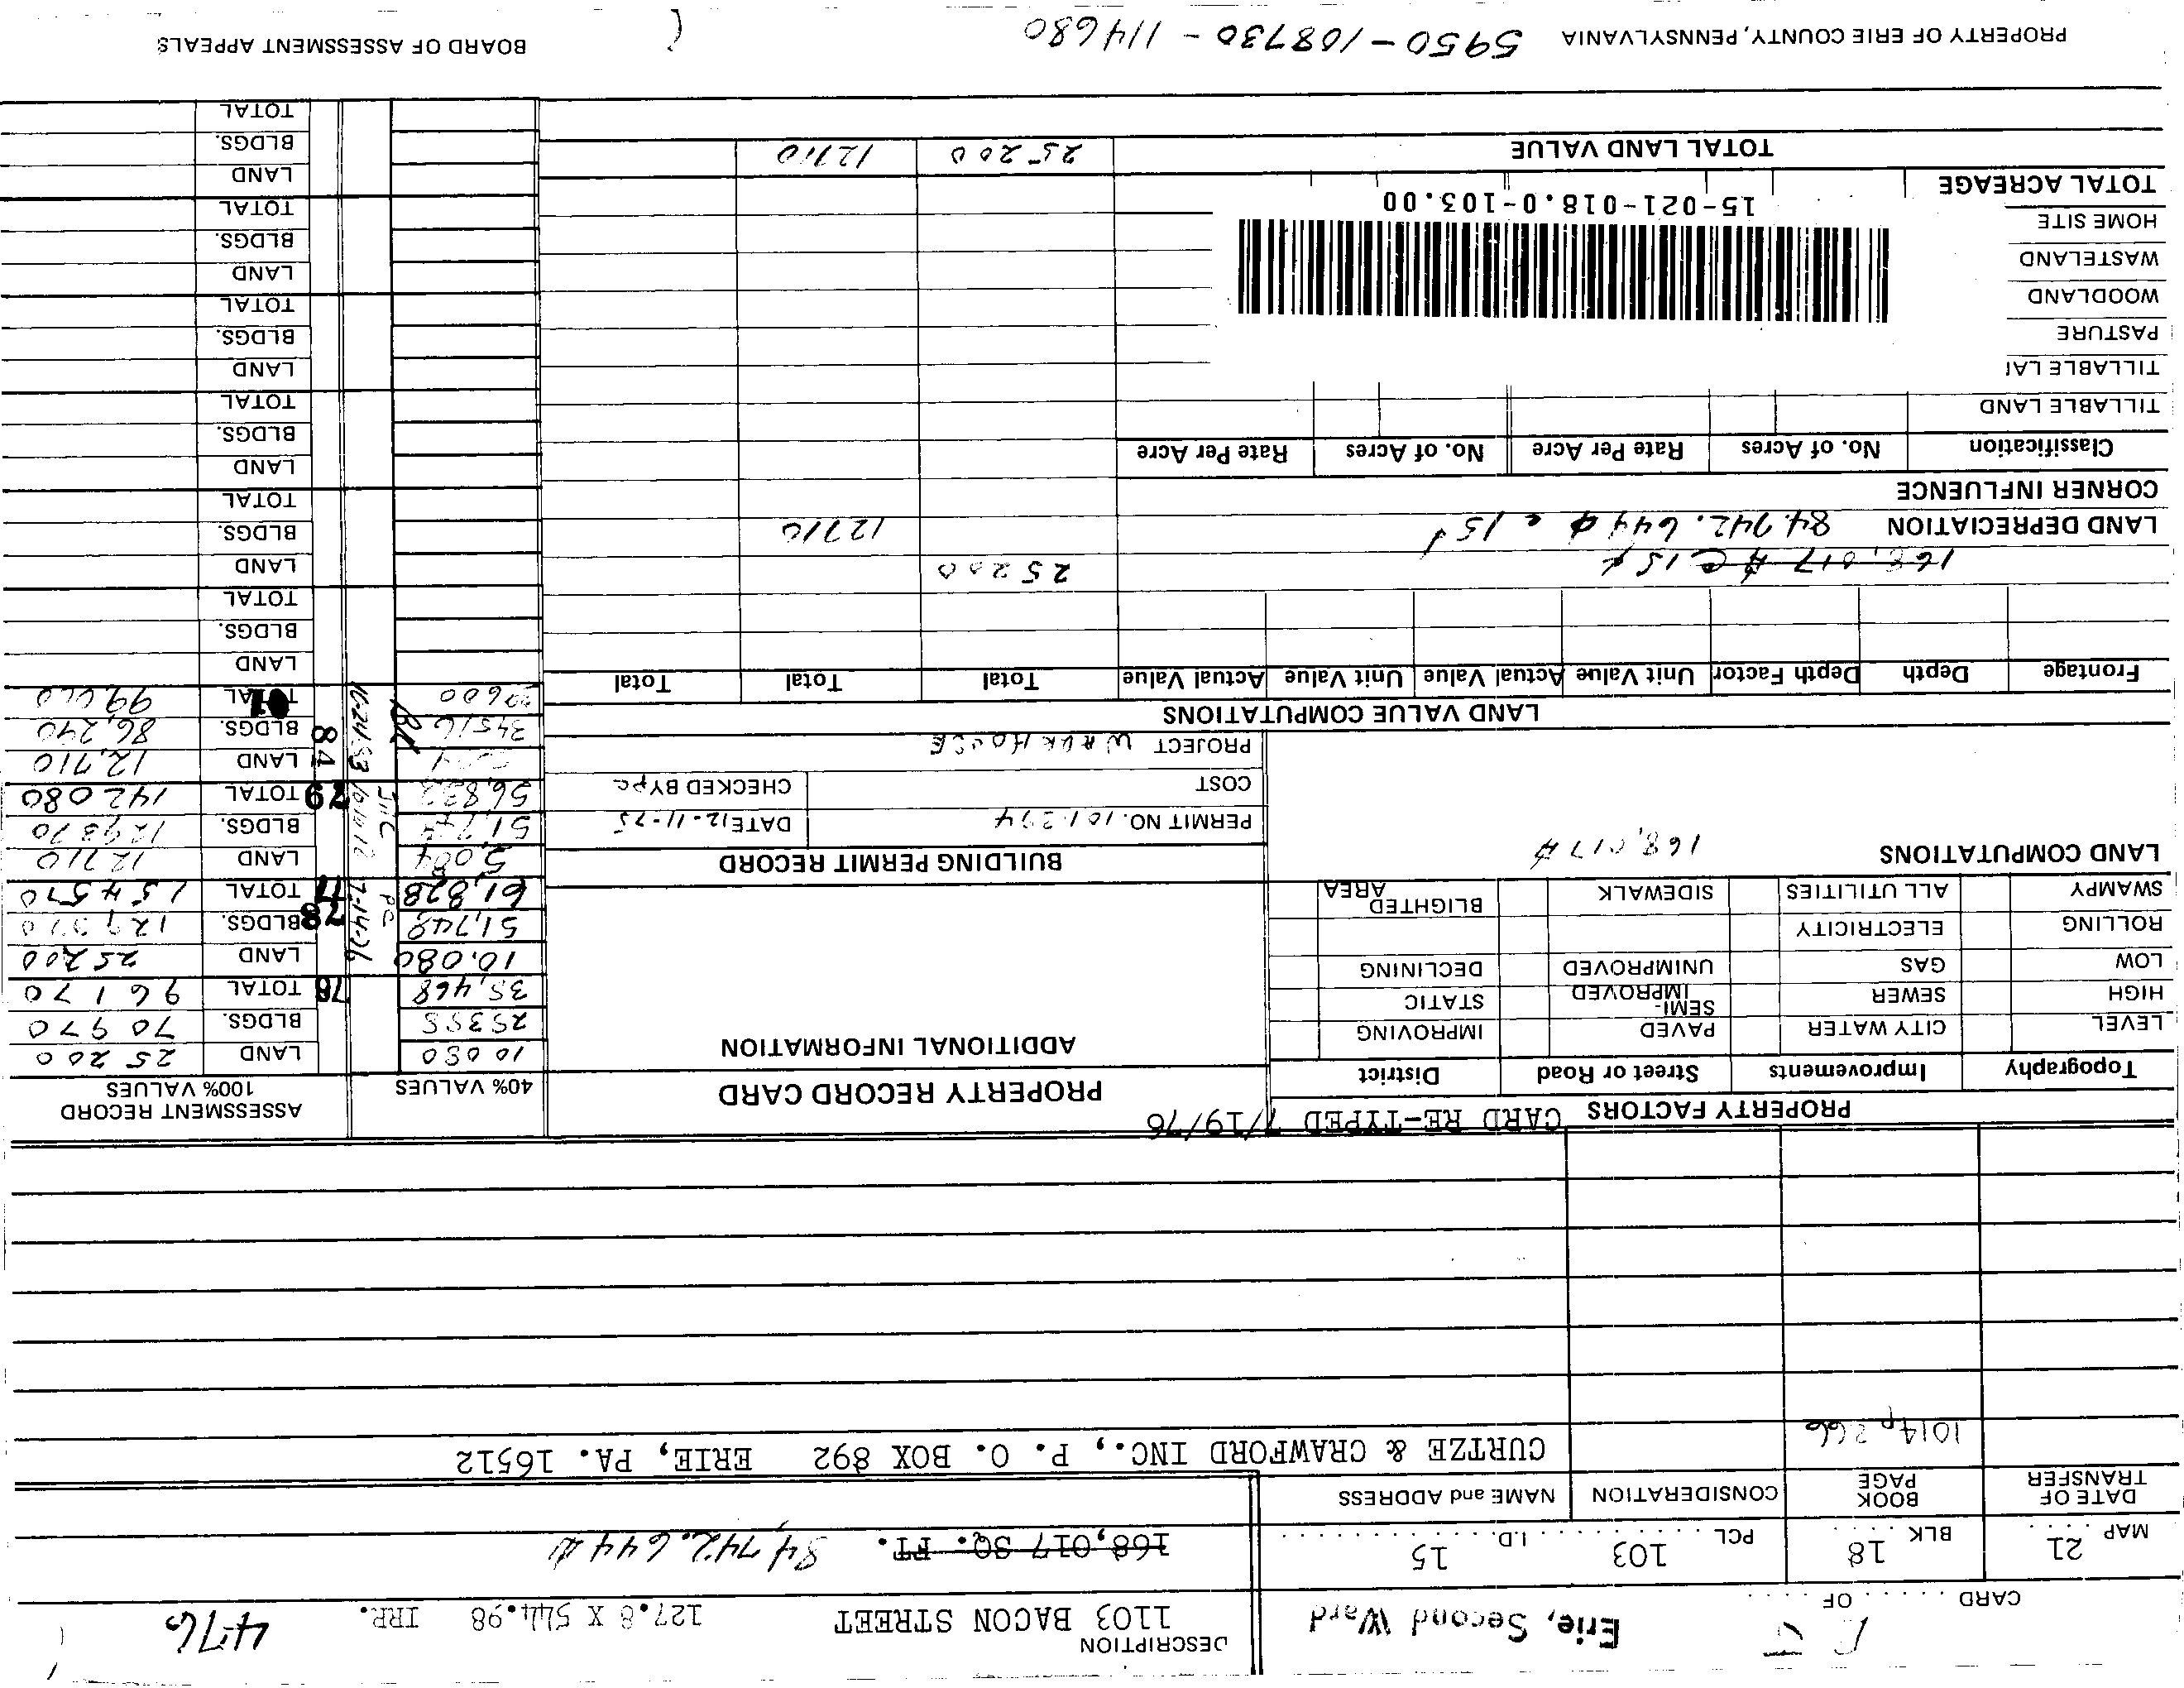 CARD . . . . . OF . . . . .
Erie, Second Ward
DESCRIPTION
1103 BACON STREET 127.8 X 544.98 IRR. 476
MAP 21 BLK 18 PCL 103 I.D. 15
168,017 SQ. FT. 84,742.644
DATE OF TRANSFER BOOK PAGE CONSIDERATION NAME and ADDRESS
1014 p 266 CURTZE & CRAWFORD INC., P. O. BOX 892 ERIE, PA. 16512
PROPERTY FACTORS CARD RE-TYPED 7/19/76
Topography Improvements Street or Road District
LEVEL CITY WATER PAVED IMPROVING
HIGH SEWER SEMI-IMPROVED STATIC
LOW GAS UNIMPROVED DECLINING
ROLLING ELECTRICITY
SWAMPY ALL UTILITIES SIDEWALK BLIGHTED AREA
LAND COMPUTATIONS
168,017
PROPERTY RECORD CARD
ADDITIONAL INFORMATION
BUILDING PERMIT RECORD
PERMIT NO. 101294 DATE 12-11-75
COST CHECKED BY PC
PROJECT WAREHOUSE
40% VALUES ASSESSMENT RECORD 100% VALUES
10 080 LAND 25 200
25388 BLDGS. 70 970
35,468 78 TOTAL 96 170
10,080 LAND 25 200
51,748 78 BLDGS. 129370
61,828 PC 7-14-76 77 TOTAL 154570
5,084 LAND 12710
51,748 BLDGS. 129370
56,832 79 TOTAL 142080
84 LAND 12,710
34516 BLDGS. 86,240
10-24-83 81 TOTAL
LAND VALUE COMPUTATIONS
Frontage Depth Depth Factor Unit Value Actual Value Unit Value Actual Value Total Total Total
168,017 @ 15¢ 25200
LAND DEPRECIATION 84.742.644 @ 15¢ 12710
CORNER INFLUENCE
Classification No. of Acres Rate Per Acre No. of Acres Rate Per Acre
TILLABLE LAND
TILLABLE LAI
PASTURE
WOODLAND
WASTELAND
HOME SITE
TOTAL ACREAGE
15-021-018.0-103.00
TOTAL LAND VALUE 25200 12710
LAND
BLDGS.
TOTAL
LAND
BLDGS.
TOTAL
LAND
BLDGS.
TOTAL
LAND
BLDGS.
TOTAL
LAND
BLDGS.
TOTAL
LAND
BLDGS.
TOTAL
PROPERTY OF ERIE COUNTY, PENNSYLVANIA 5950-108730-114680 BOARD OF ASSESSMENT APPEALS